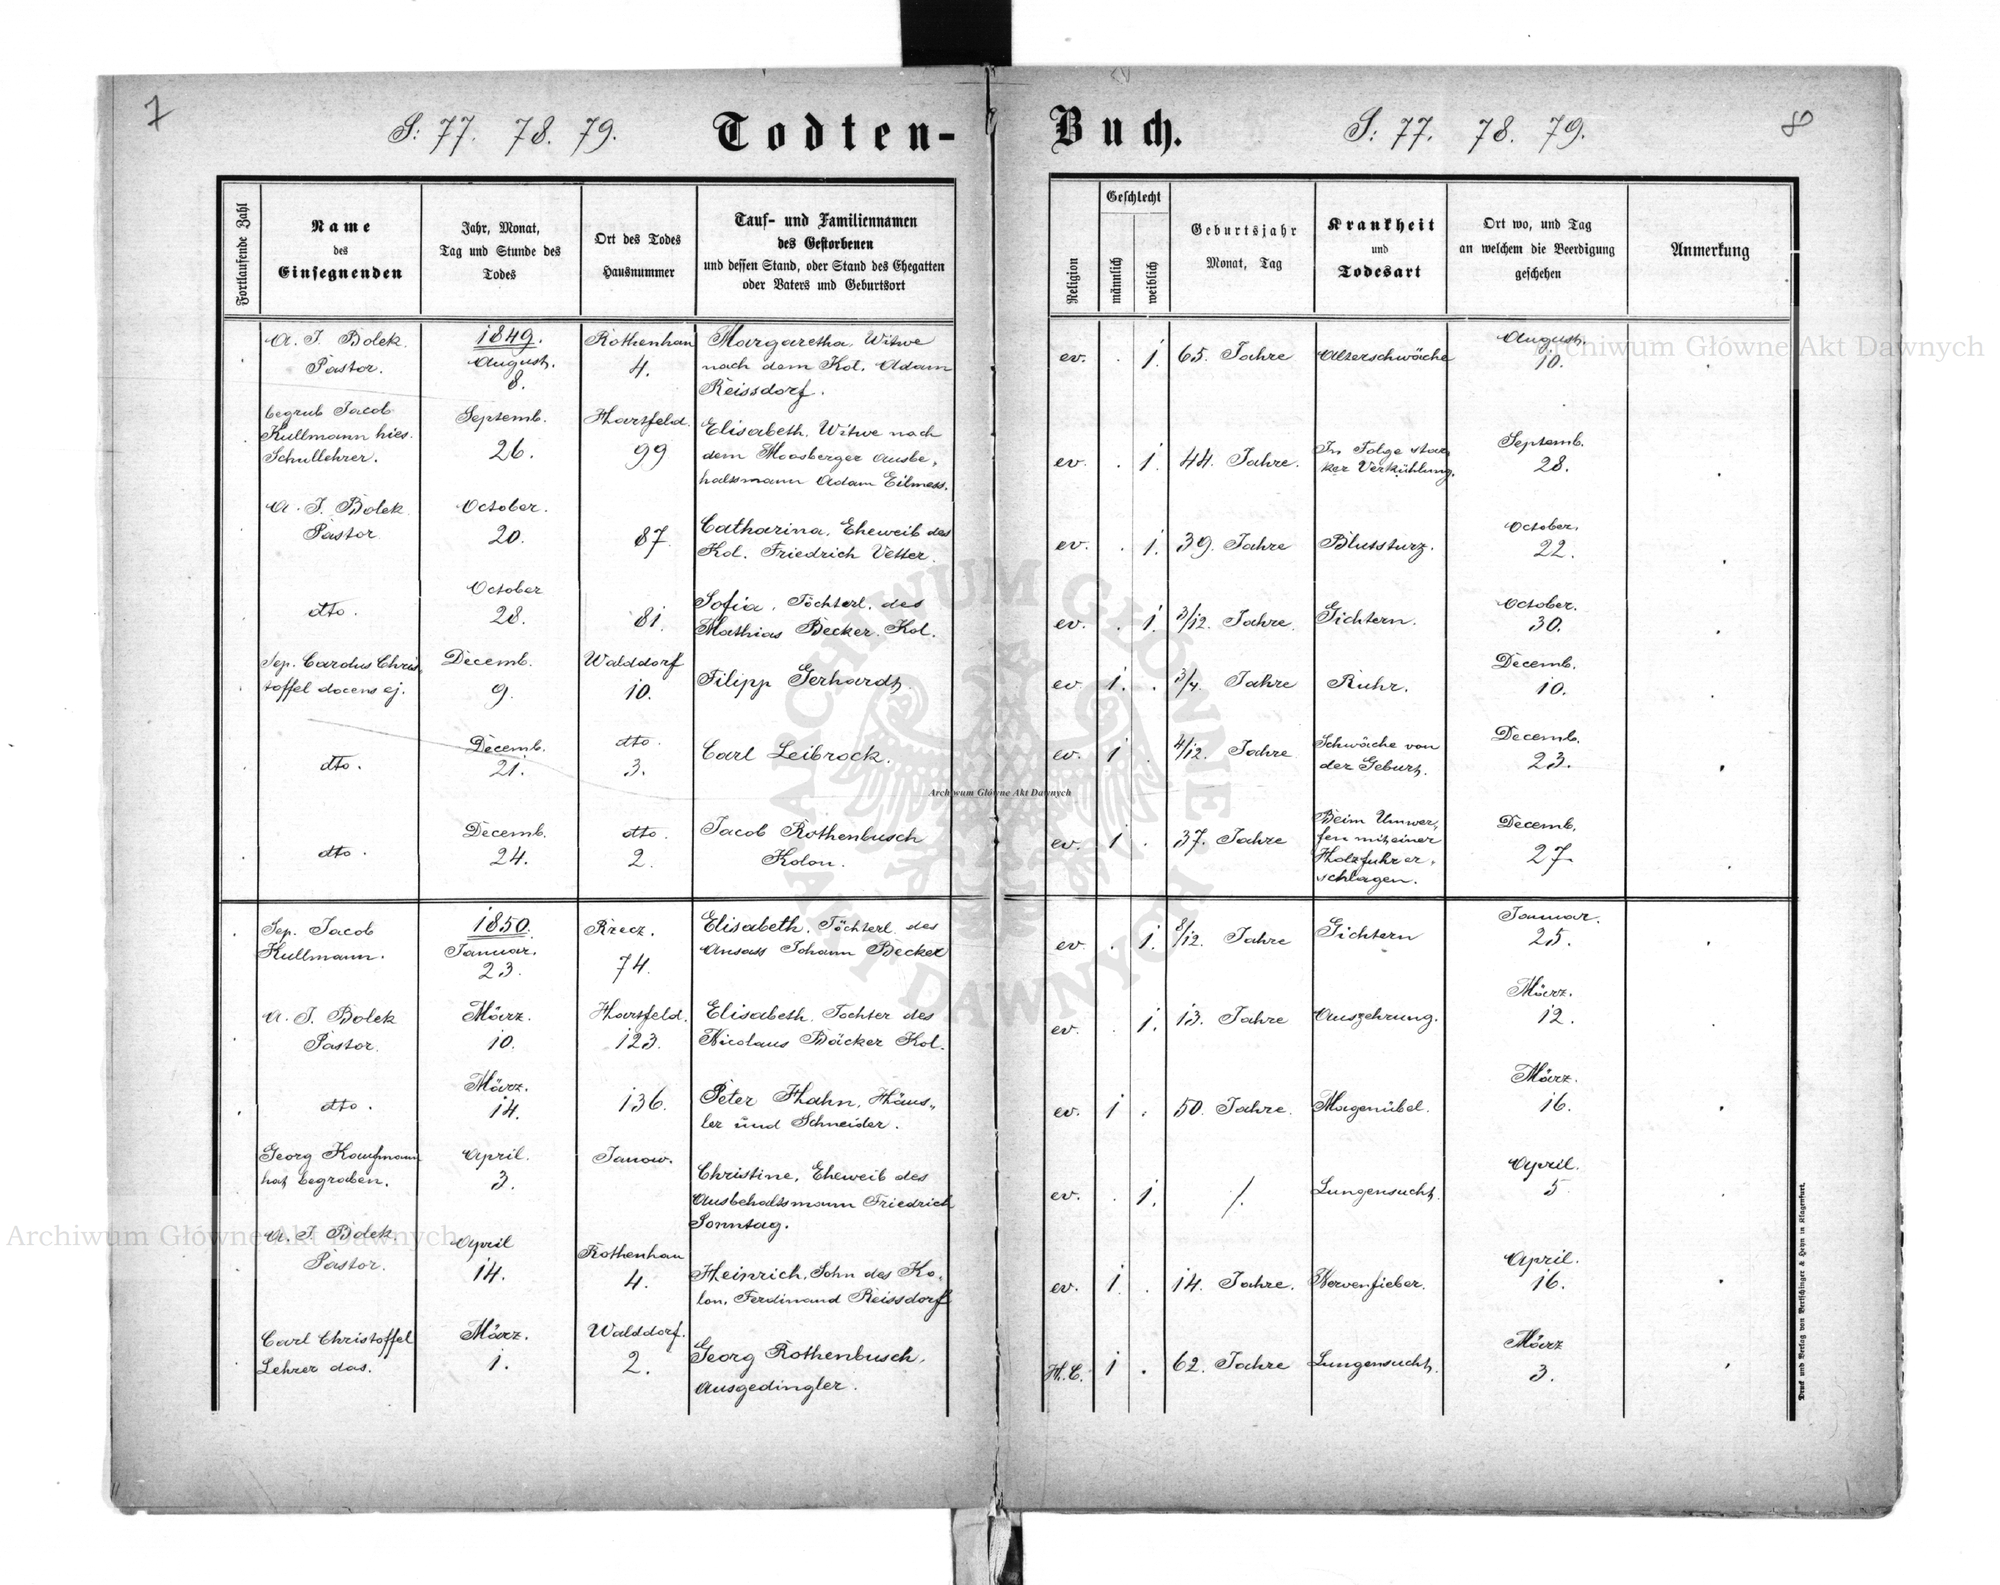 7
S: 77. 78. 79.
Todten-
Buch.
S: 77. 78. 79.
8
Fortlaufende Zahl
Name
des
Einsegnenden
Jahr, Monat,
Tag und Stunde des
Todes
Ort des Todes
Hausnummer
Tauf- und Familiennamen
des Gestorbenen
und dessen Stand, oder Stand des Ehegatten
oder Vaters und Geburtsort
Religion
Geschlecht
männlich
weiblich
Geburtsjahr
Monat, Tag
Krankheit
und
Todesart
Ort wo, und Tag
an welchem die Beerdigung
geschehen
Anmerkung
A. J. Bolek
Pastor.
1849.
August.
8.
Rothenhan
4.
Margaretha, Witwe
nach dem Kol. Adam
Reissdorf.
ev. . 1. 65. Jahre
Alterschwäche
August.
10.
begrub Jacob
Kullmann hies.
Schullehrer.
Septemb.
26.
Hartfeld.
99
Elisabeth, Witwe nach
dem Moosberger Ausbe,
haltsmann Adam Eilmess.
ev. . 1. 44. Jahre.
In Folge star
ker Verkühlung.
Septemb.
28.
A. J. Bolek
Pastor
October.
20.
87.
Catharina, Eheweib des
Kol. Friedrich Vetter.
ev. . 1. 39. Jahre
Blutsturz.
October.
22.
dto.
October
28.
81.
Sofia, Töchterl. des
Mathias Becker. Kol.
ev. . 1. 3/12. Jahre.
Gichtern.
October.
30.
Sep. Cardus Chris,
toffel docens ej.
Decemb.
9.
Walddorf
10.
Filipp Gerhardt.
ev. 1. . 3/4. Jahre
Ruhr.
Decemb.
10.
dto.
Decemb.
21.
dto.
3.
Carl Leibrock.
ev. 1 . 4/12. Jahre
Schwäche von
der Geburt.
Decemb.
23.
dto.
Decemb.
24.
dto.
2.
Jacob Rothenbusch
Kolon.
ev. 1 . 37. Jahre
Beim Umwer,
fen mit einer
Holzfuhr er,
schlagen.
Decemb.
27.
Sep. Jacob
Kullmann.
1850.
Januar.
23.
Rzecz.
74.
Elisabeth, Töchterl. des
Ansass Johann Becker
ev. . 1. 8/12. Jahre
Gichtern
Januar.
25.
A. J. Bolek
Pastor.
März.
10.
Hartfeld.
123.
Elisabeth, Tochter des
Nicolaus Bäcker Kol.
ev. . 1. 13. Jahre
Auszehrung.
März.
12.
dto.
März.
14.
136.
Peter Hahn, Häus,,
ler und Schneider.
ev. 1 . 50. Jahre.
Magenübel.
März.
16.
Georg Kaufmann
hat begraben.
April.
3.
Janow.
Christine, Eheweib des
Ausbehaltsmann Friedrich
Sonntag.
ev. . 1. /.
Lungensucht.
April.
5
A. J. Bolek
Pastor.
April
14.
Rothenhan
4.
Heinrich, Sohn des Ko,
lon, Ferdinand Reissdorf
ev. 1. . 14. Jahre.
Nervenfieber.
April.
16.
Carl Christoffel
Lehrer das.
März.
1.
Walddorf.
2.
Georg Rothenbusch,
Ausgedingler.
H.C. 1 . 62. Jahre
Lungensucht.
März
3.
Druck und Verlag von Bertschinger & Heyn in Klagenfurt.
Archiwum Główne Akt Dawnych
Archiwum Główne Akt Dawnych
Archiwum Główne Akt Dawnych
ARCHIWUM GŁÓWNE AKT DAWNYCH